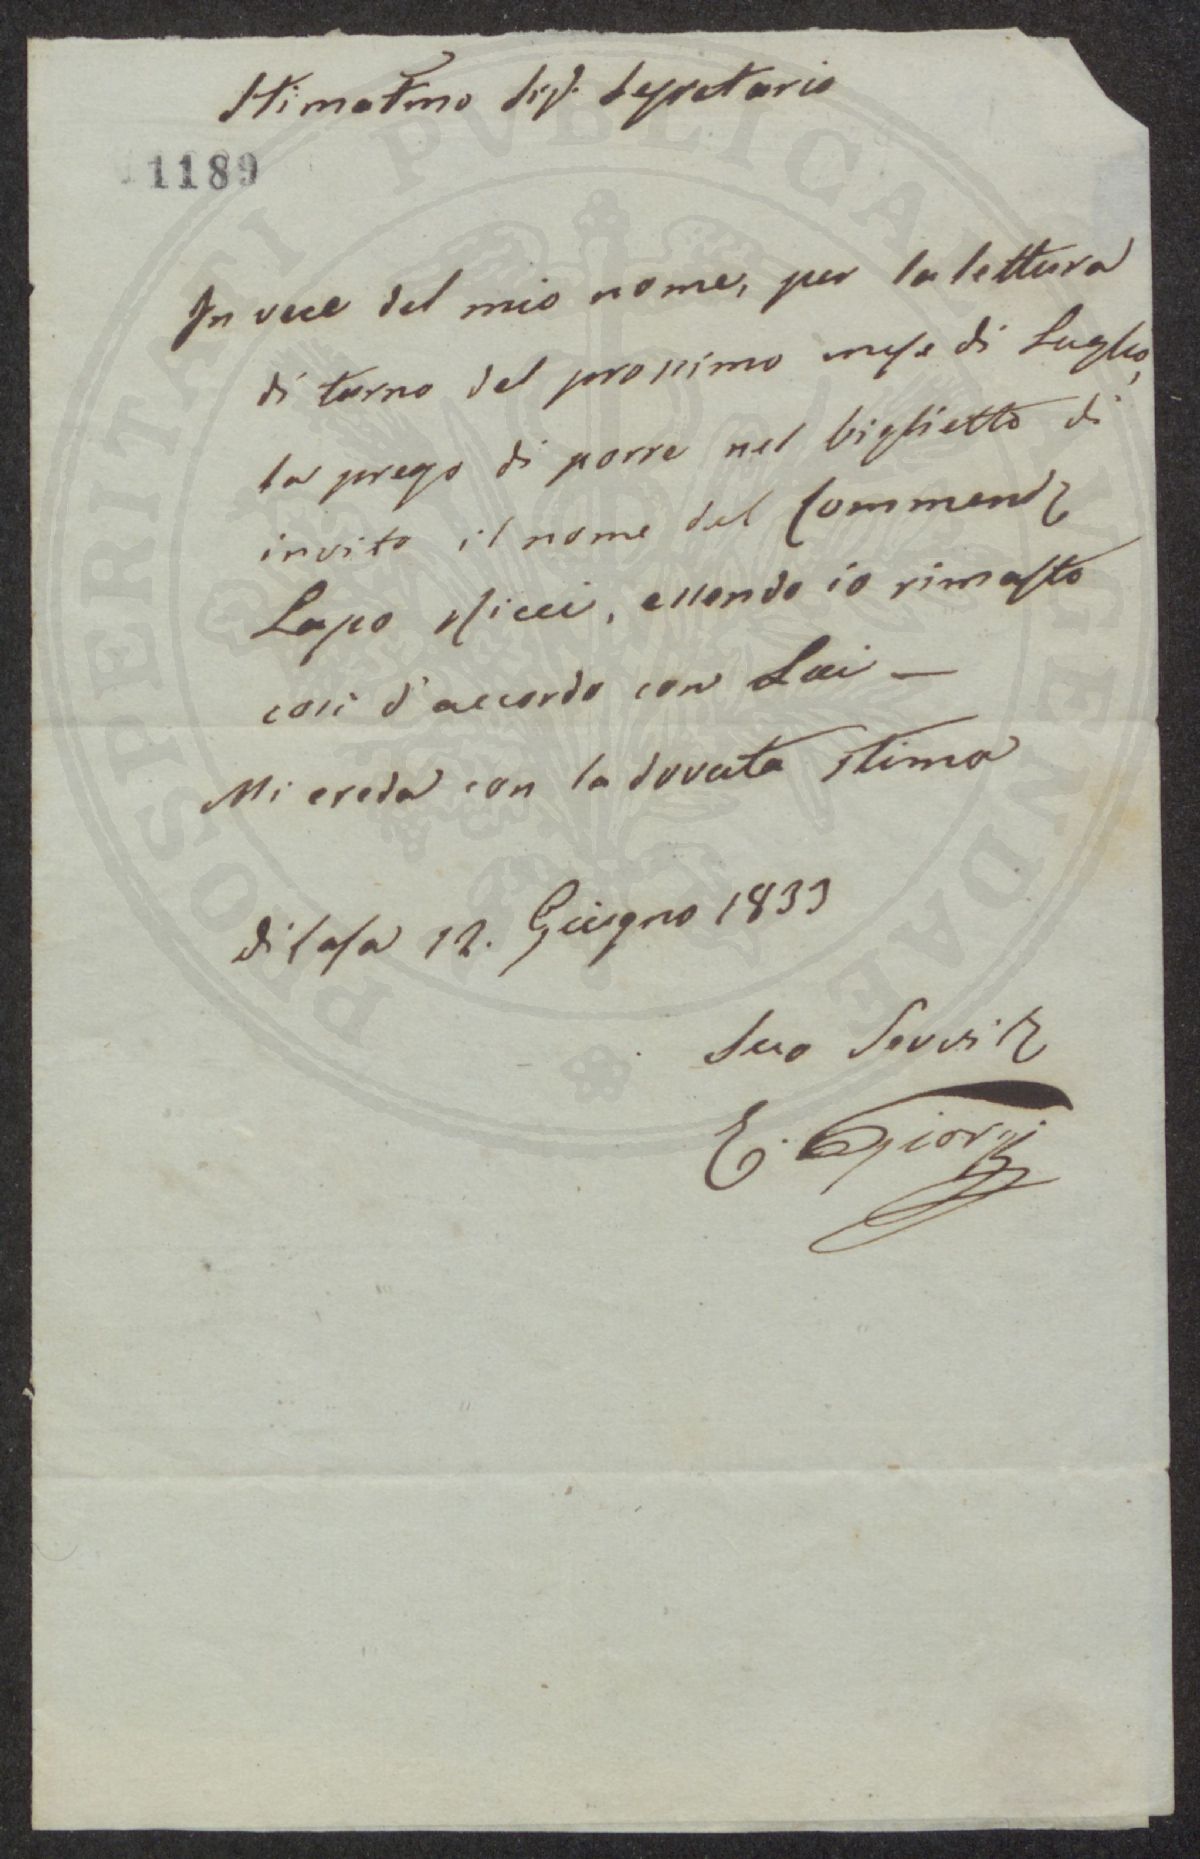 Stimatmo Sigr. Segretario
1189
In vece del mio nome, per la lettura
di turno del prossimo mese di Luglio,
la prego di porre nel biglietto di
invito il nome del Commendr
Lapo Ricci, essendo io rimasto
così d'accordo con Lui —
Mi creda con la dovuta stima
Di Casa 12. Giugno 1833
Suo Servitr
E. Giorgi
PROSPERITATI PVBLICAE AVGENDAE